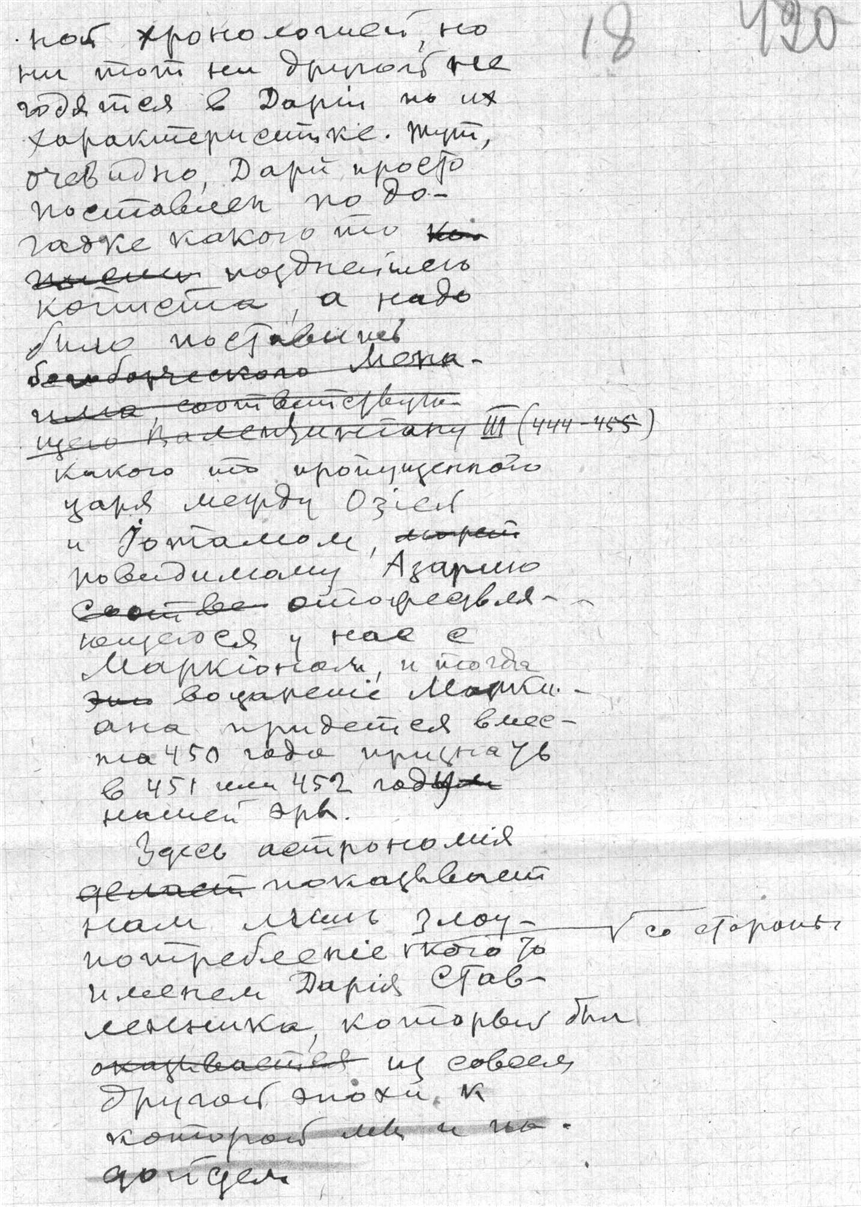 18 490
ной хронологией, но
ни тот ни другой не
годятся в Дарии по их
характеристике. Тут,
очевидно, Дарий просто
поставлен по до-
гадке какого то
позднейшего
кописта, а надо
было поставить
богоборческого Мена-
има, соответствую-
щего Валентиниану III (444-455)
какого то пропущенного
царя между Озіей
и Іотамом, может
повидимому Азарию
соотве отождевля-
ющегося у нас с
Маркіоном, и тогда
это воцареніе Марки-
ана придется вмес-
то 450 года признать
в 451 или 452 году
нашей эры.
Здесь астрономія
делает показывает
нам лишь злоу-
потребленіе √ со стороны
кого то
именем Дарія Став-
ленника, который был
оказывается из совсем
другой эпохи, к
которой мы и по-
дойдем